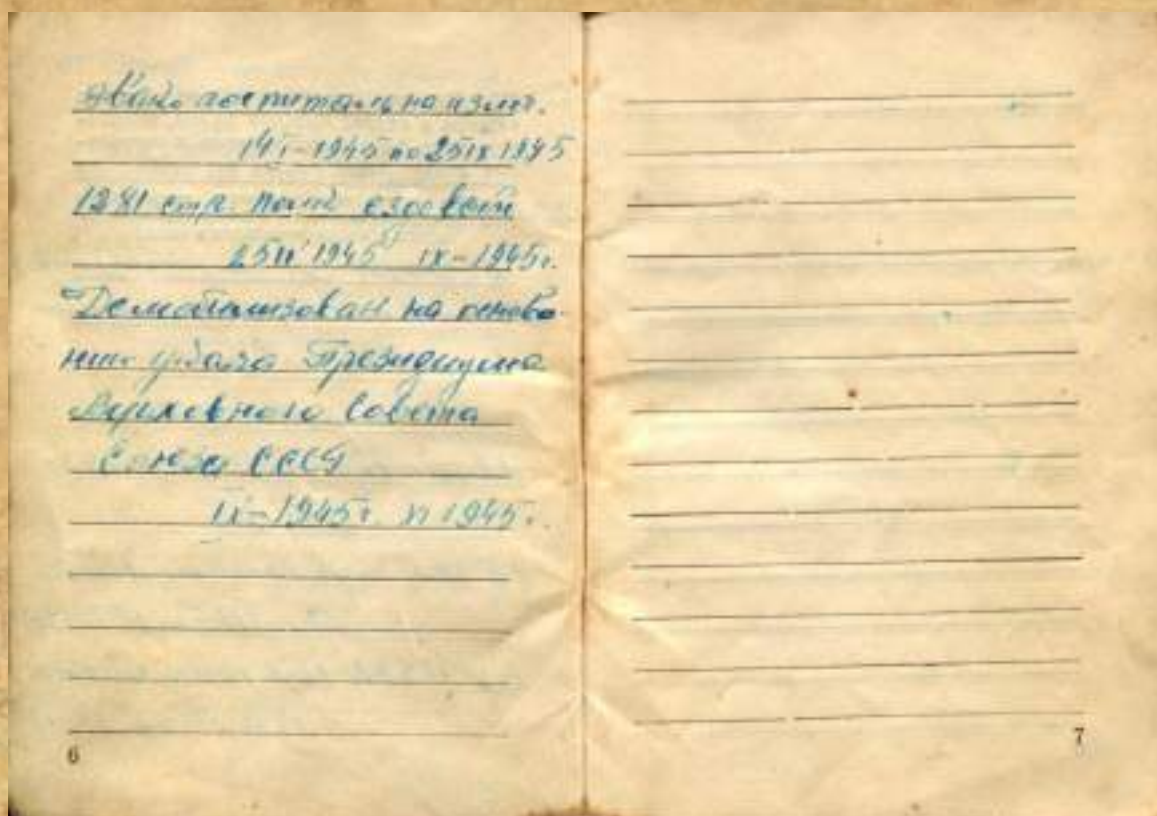 госпиталь на излеч.
1945 по 25 IX 1945
1281 стр. полк ездовой
1945 IX-1945г.
Демобилизован на основа-
нии указа Президиума
Верховного Совета
Союза СССР
IX-1945г. 1945г.
6
7